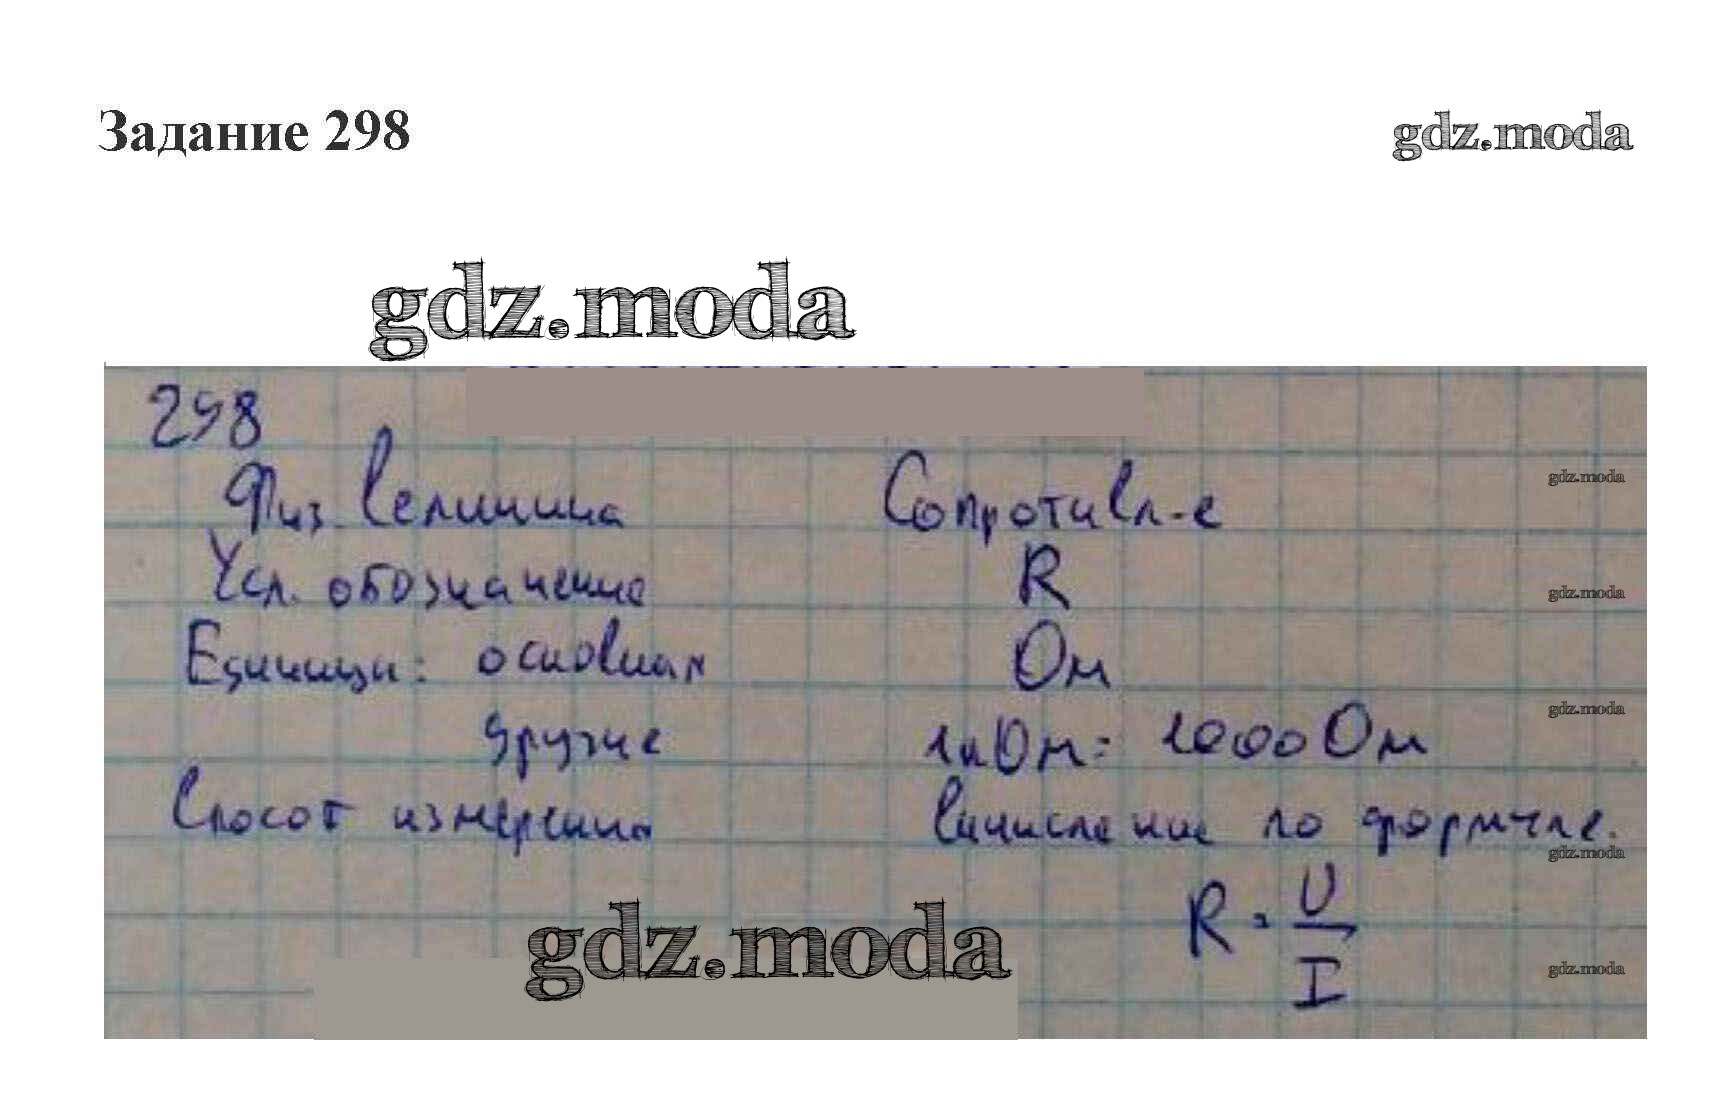 Задание 298 gdz.moda
gdz.moda
298
Физ. величина Сопротивл-е gdz.moda
Усл. обозначение R gdz.moda
Единицы: основная Ом
другие 1кОм = 1000 Ом gdz.moda
Способ измерения вычисление по формуле.
gdz.moda
R = U
I
gdz.moda gdz.moda